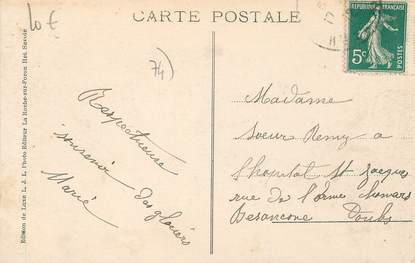 CARTE POSTALE
10 €
74
RÉPUBLIQUE FRANÇAISE
5c
POSTES
Edition de Luxe L. J. L. Photo Editeur La Roche-sur-Foron Hte Savoie
Respectueux
souvenir des glaciers
Marie
Madame
Soeur Remy a
l'hopital St Jacques
rue de l'orme Chamars
Besancone Doubs